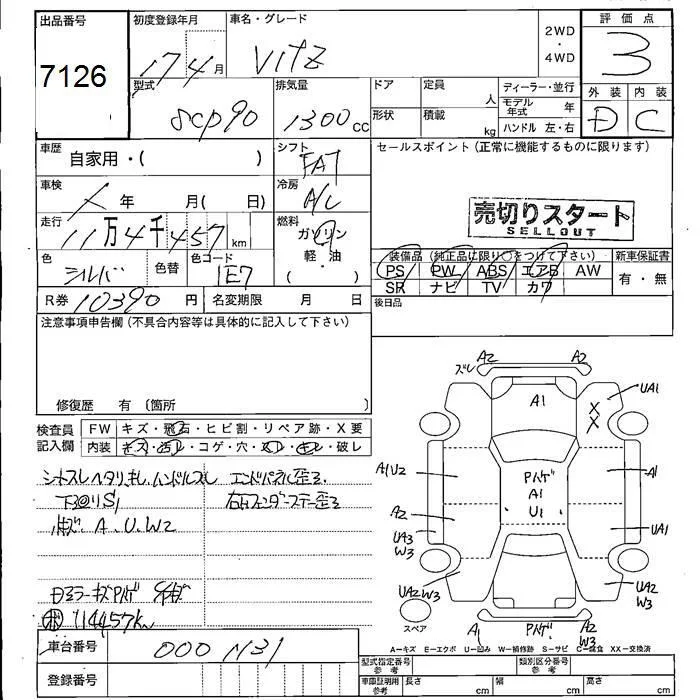 出品番号 初度登録年月 車名・グレード 2WD・4WD 評価点
7126 17 4月 VITZ 3
型式 排気量 ドア 定員 人 ディーラー・並行 外装 内装
SCP90 1300cc 形状 積載 kg モデル年式 年 D C
ハンドル 左・右
車歴 自家用・( ) シフト FAT セールスポイント(正常に機能するものに限ります)
車検 年 月( 日) 冷房 A/C
売切りスタート
SELLOUT
走行 11万4千457km 燃料 ガソリン
軽・油
・( )
色 シルバ 色替 色コード 1E7
装備品(純正品に限り○をつけて下さい) 新車保証書
PS PW ABS エアB AW 有・無
SR ナビ TV カワ
R券 10390円 名変期限 月 日 後日品
注意事項申告欄(不具合内容等は具体的に記入して下さい)
修復歴 有(箇所 )
検査員記入欄 FW キズ・飛石・ヒビ割・リペア跡・X要
内装 キズ・汚レ・コゲ・穴・
・破レ
エンドパネル歪ミ
下
S1
A、U、W2
キズ
114457km
車台番号 000 1131
登録番号
ズレ A2 A2
A1 UA1
X
X
A1U2 Pハゲ A1
A1
U1
A2 UA1
UA3
W3
UA2 W3 UA2
W3
スペア A1 Pハゲ A2
W3
A−キズ E−エクボ U−凹み W−補修跡 S−サビ C−腐食 XX−交換済
型式指定番号 参考 類別区分番号 参考
車庫証明用 参考 長さ cm 幅 cm 高さ cm